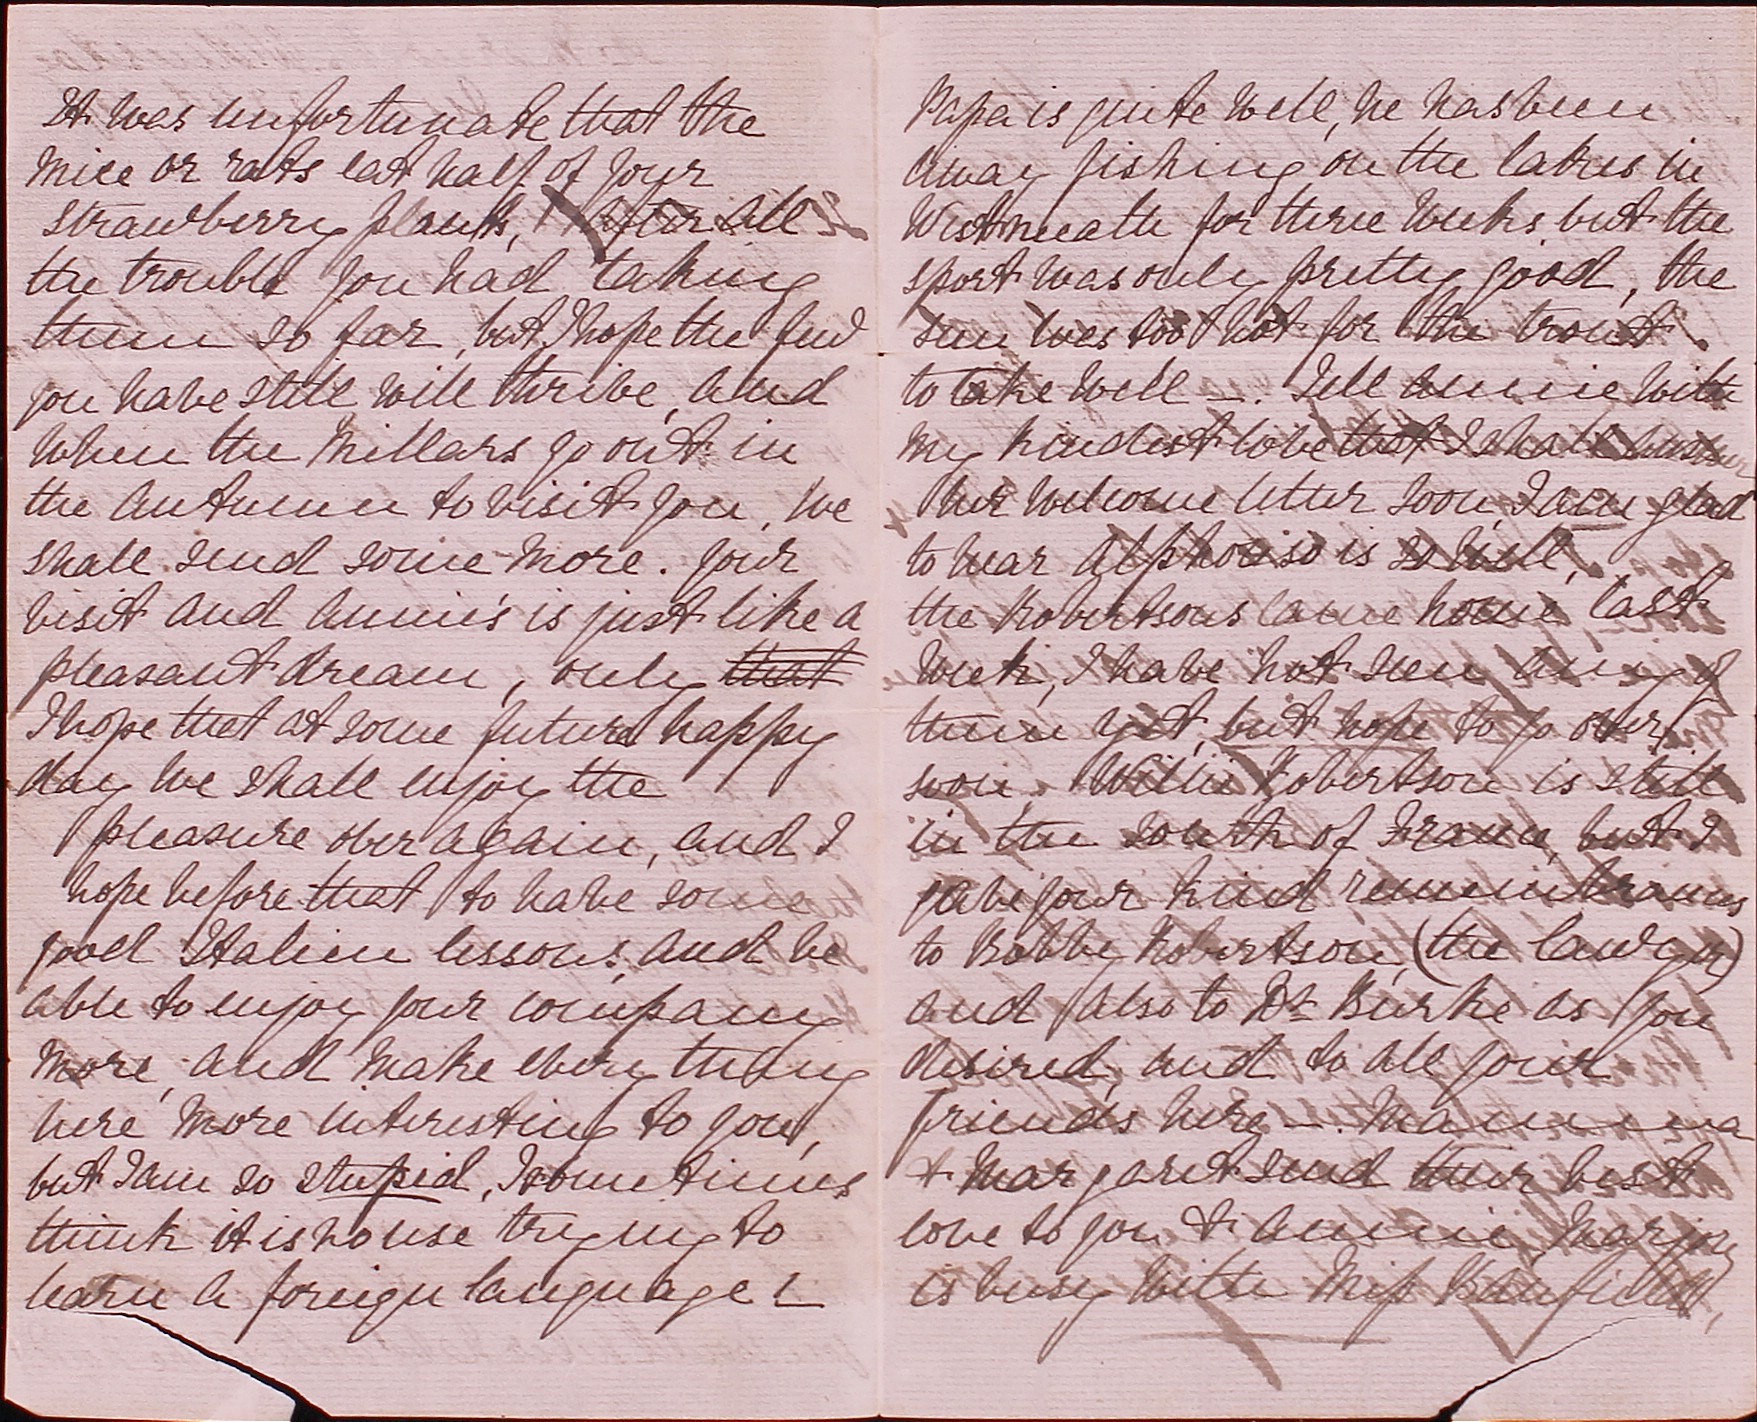 It was unfortunate that the
mice or rats eat half of your
strawberry plants, after all
the trouble you had taking
them so far, but I hope the few
you have still will thrive, and
when the Millars go out in
the Autumn to visit you, we
shall send some more. Your
visit and Annie's is just like a
pleasant dream, only that
I hope that at some future happy
day we shall enjoy the
pleasure over again, and I
hope before that to have some
good Italian lessons, and be
able to enjoy your company
more, and make every thing
here more interesting to you,
but I am so stupid, I sometimes
think it is no use trying to
learn a foreign language!
Papa is quite well, he has been
away fishing on the lakes in
Westmeath for three weeks but the
sport was only pretty good, the
sun was too hot for the trout
to take well —. Tell Annie with
my kindest love that I shall answer
her welcome letter soon, I am glad
to hear Alphonso is so well,
the Robertsons came home last
week, I have not seen any of
them yet, but hope to go over
soon. Willie Robertson is still
in the South of France, but I
gave your kind remembrances
to Bobby Robertson, (the lawyer)
and also to Dr Burke as you
desired, and to all your
friends here —. Mamma
& Margaret send their best
love to you & Annie, Marjory
is busy with Miss Banfield,